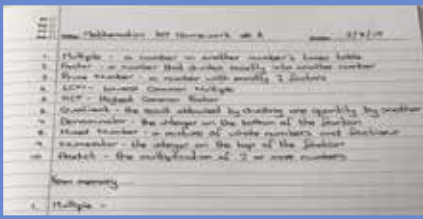 Mathematics Homework
1. Multiple - a number in another number's times table
2. Factor - a number that divides exactly into another number
3. Prime Number - a number with exactly 2 factors
4. LCM - Lowest Common Multiple
5. HCF - Highest Common Factor
6. Quotient - the result obtained by dividing one quantity by another
7. Denominator - the integer on the bottom of the fraction
8. Mixed Number - a mixture of whole numbers and fractions
9. Numerator - the integer on the top of the fraction
10. Product - the multiplication of 2 or more numbers
From memory
1. Multiple -